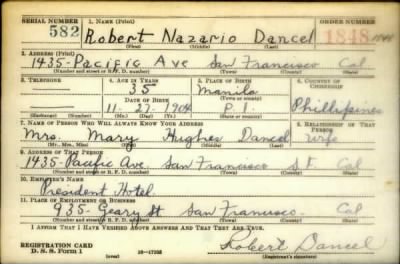 SERIAL NUMBER 1. NAME (Print) ORDER NUMBER
582 Robert Nazario Dancel 1848
(First) (Middle) (Last)
2. ADDRESS (Print)
1435-Pacific Ave San Francisco Cal
(Number and street or R. F. D. number) (Town) (County) (State)
3. TELEPHONE 4. AGE IN YEARS 5. PLACE OF BIRTH 6. COUNTRY OF CITIZENSHIP
35 Manila
DATE OF BIRTH (Town or county)
11-27-1904 P.I. Phillipines
(Exchange) (Number) (Mo.) (Day) (Yr.) (State or country)
7. NAME OF PERSON WHO WILL ALWAYS KNOW YOUR ADDRESS 8. RELATIONSHIP OF THAT PERSON
Mrs. Mary Hughes Dancel Wife
(Mr., Mrs., Miss) (First) (Middle) (Last)
9. ADDRESS OF THAT PERSON
1435-Pacific Ave. San Francisco S.F. Cal
(Number and street or R. F. D. number) (Town) (County) (State)
10. EMPLOYER'S NAME
President Hotel
11. PLACE OF EMPLOYMENT OR BUSINESS
935-Geary St San Francisco. Cal
(Number and street or R. F. D. number) (Town) (County) (State)
I AFFIRM THAT I HAVE VERIFIED ABOVE ANSWERS AND THAT THEY ARE TRUE.
REGISTRATION CARD
D. S. S. Form 1 16-17105 Robert Dancel
(Registrant's signature)